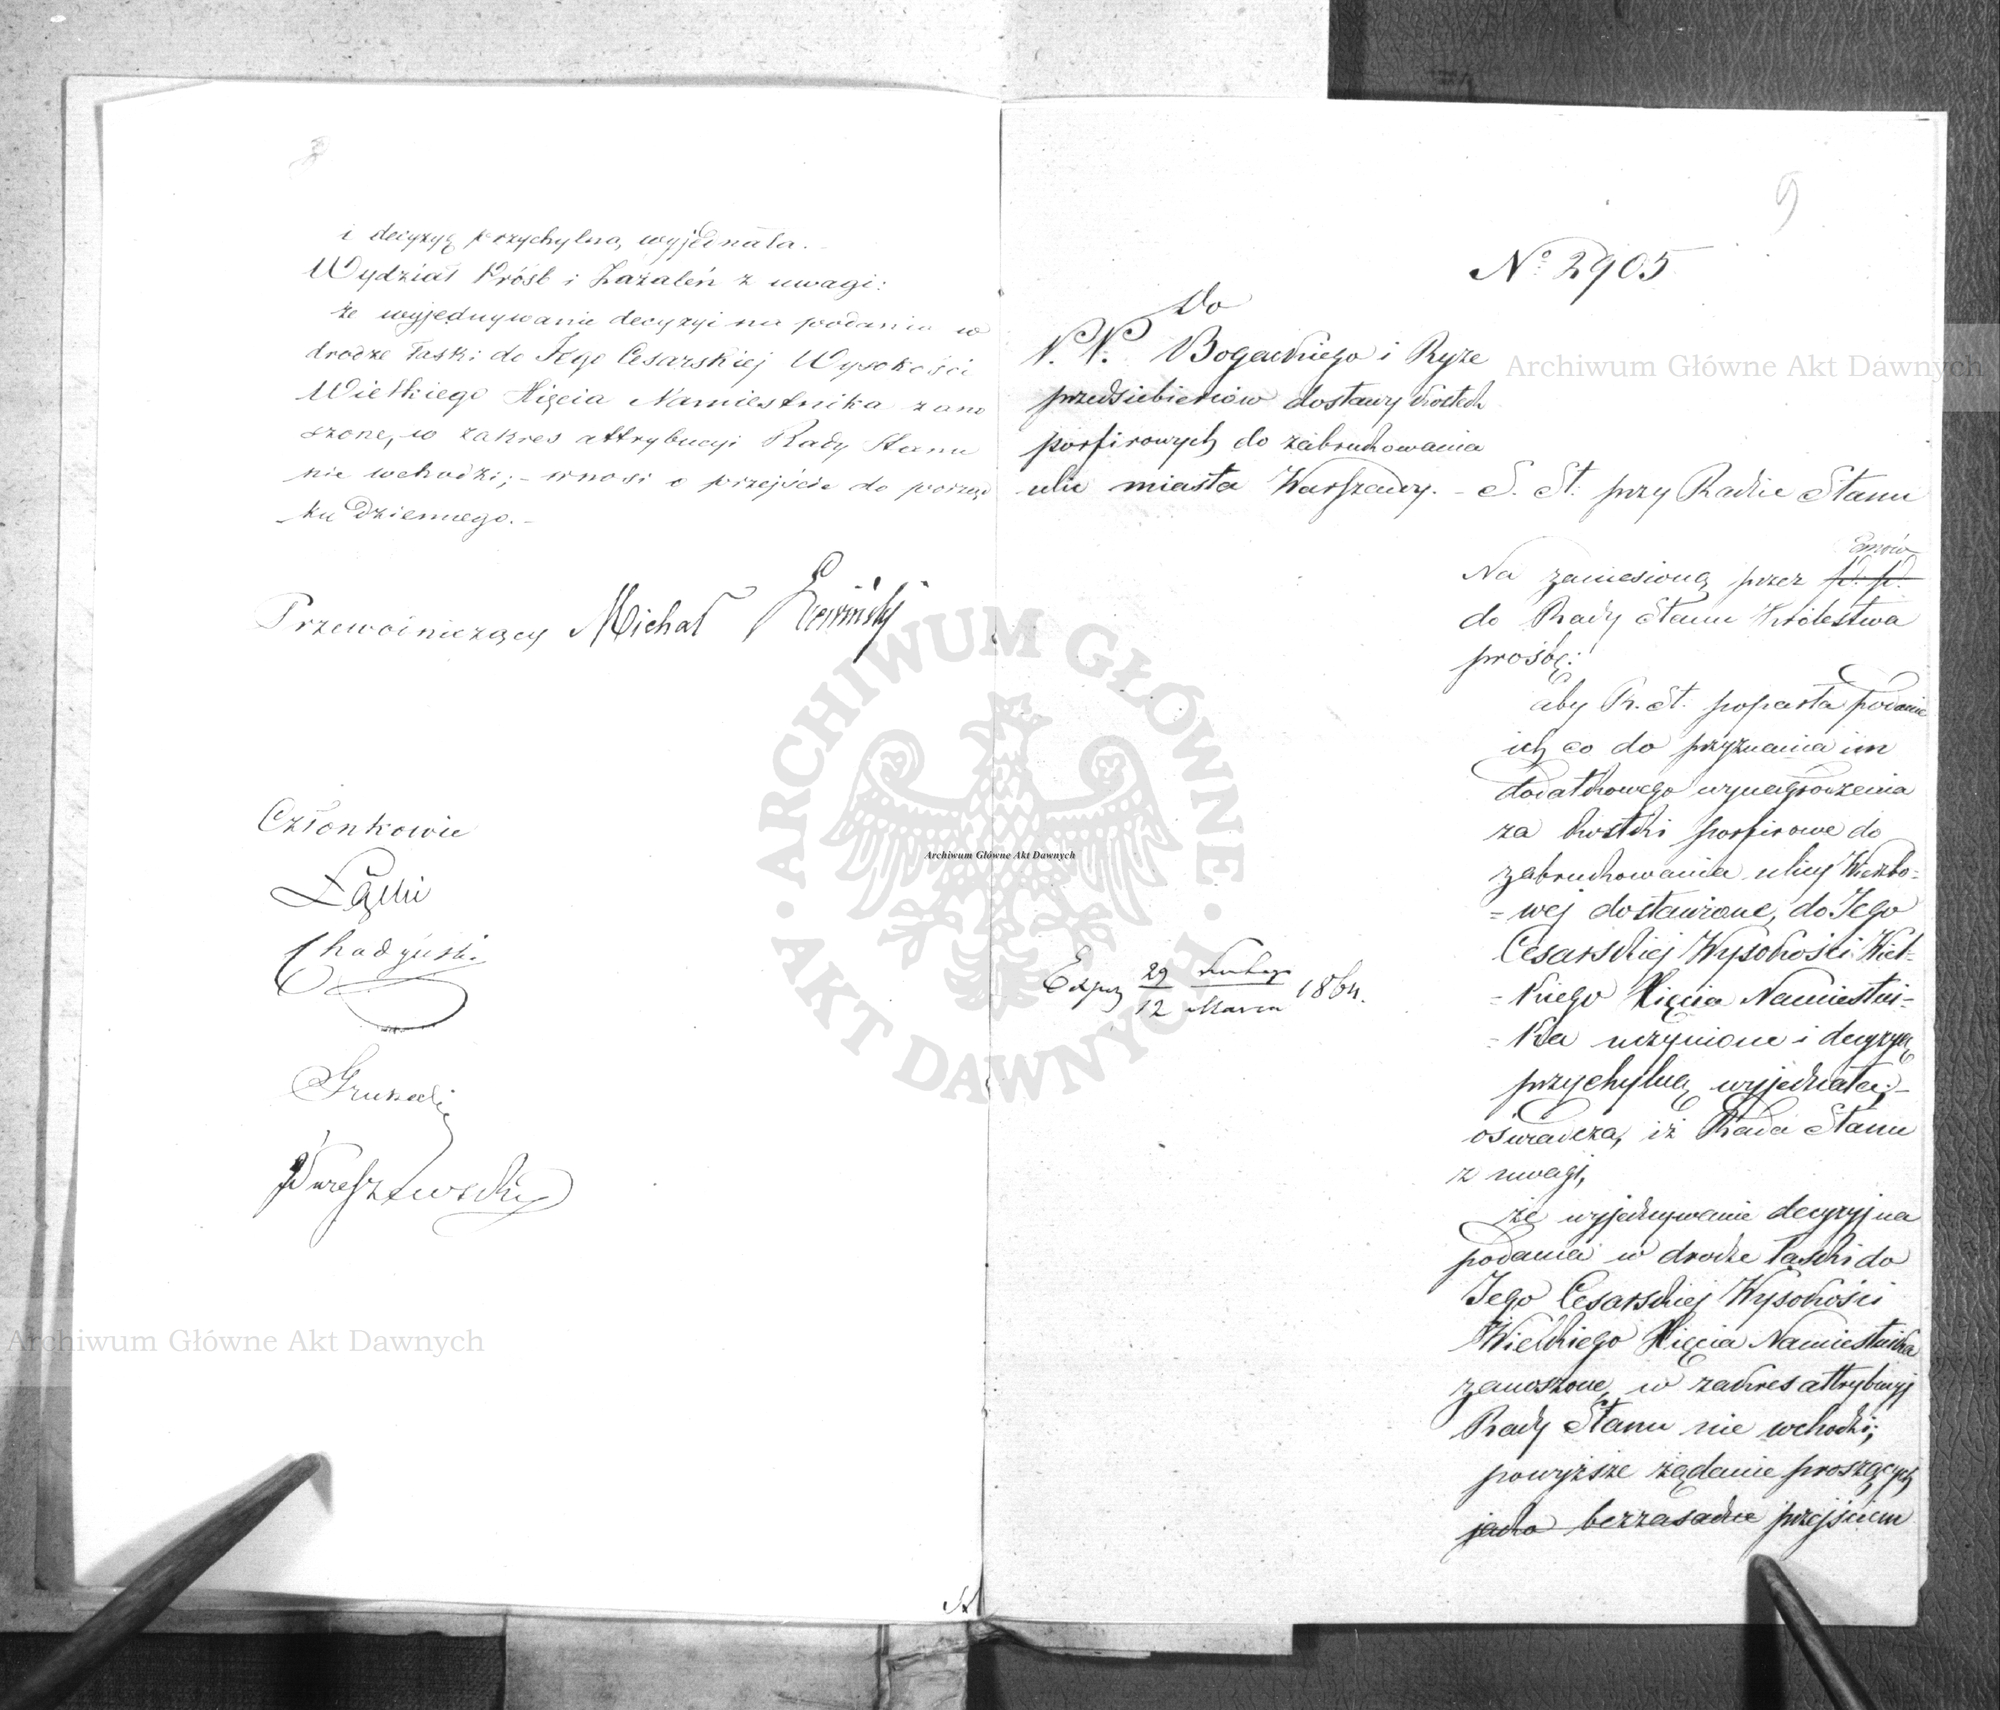 i decyzyę przychylną wyjednała. –
Wydział Próśb i Zażaleń z uwagi:
że wyjednywanie decyzyi na podania w
drodze łaski do Jego Cesarskiej Wysokości
Wielkiego Xięcia Namiestnika zano
szone, w zakres attrybucyi Rady Stanu
nie wchodzi; – wnosi o przejście do porząd
ku dziennego. –
Przewodniczący Michał
Członkowie
Łącki
Chądzyński
9
Nº 2905
Do
P. P. Bogackiego i Ryze
przedsiębierców dostawy kostek
porfirowych do zabrukowania
ulic miasta Warszawy. – S. St. przy Radzie Stanu
Na zaniesioną przez PP. P.
do Rady Stanu Królestwa
prośbę:
aby R. St. poparła podanie
ich co do przyznania im
dodatkowego wynagrodzenia
za kostki porfirowe do
zabrukowania ulicy Wierzbo=
=wej dostawione, do Jego
Cesarskiej Wysokości Wiel-
-kiego Xięcia Namiestni-
-ka uczynione i decyzyę
przychylną wyjednała; –
oświadcza, iż Rada Stanu
z uwagi,
że wyjednywanie decyzyj na
podania w drodze łaski do
Jego Cesarskiej Wysokości
Wielkiego Xięcia Namiestnika
zanoszone, w zakres attrybucyj
Rady Stanu nie wchodzi;
powyższe żądanie proszących
jako bezzasadne przejściem
Exped. 29 Lutego / 12 Marca 1864.
Archiwum Główne Akt Dawnych
Archiwum Główne Akt Dawnych
Archiwum Główne Akt Dawnych
ARCHIWUM GŁÓWNE · AKT DAWNYCH ·